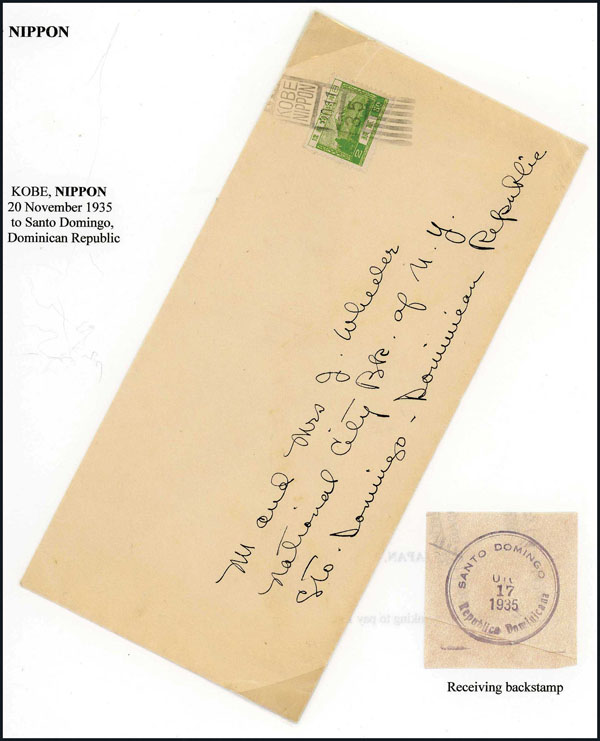 NIPPON
KOBE
NIPPON
KOBE, NIPPON
20 November 1935
to Santo Domingo,
Dominican Republic
M and Mrs J. Wheeler
National City Bk. of N.Y.
Sto. Domingo - Dominican Republic
SANTO DOMINGO
17
1935
Republica Dominicana
Receiving backstamp